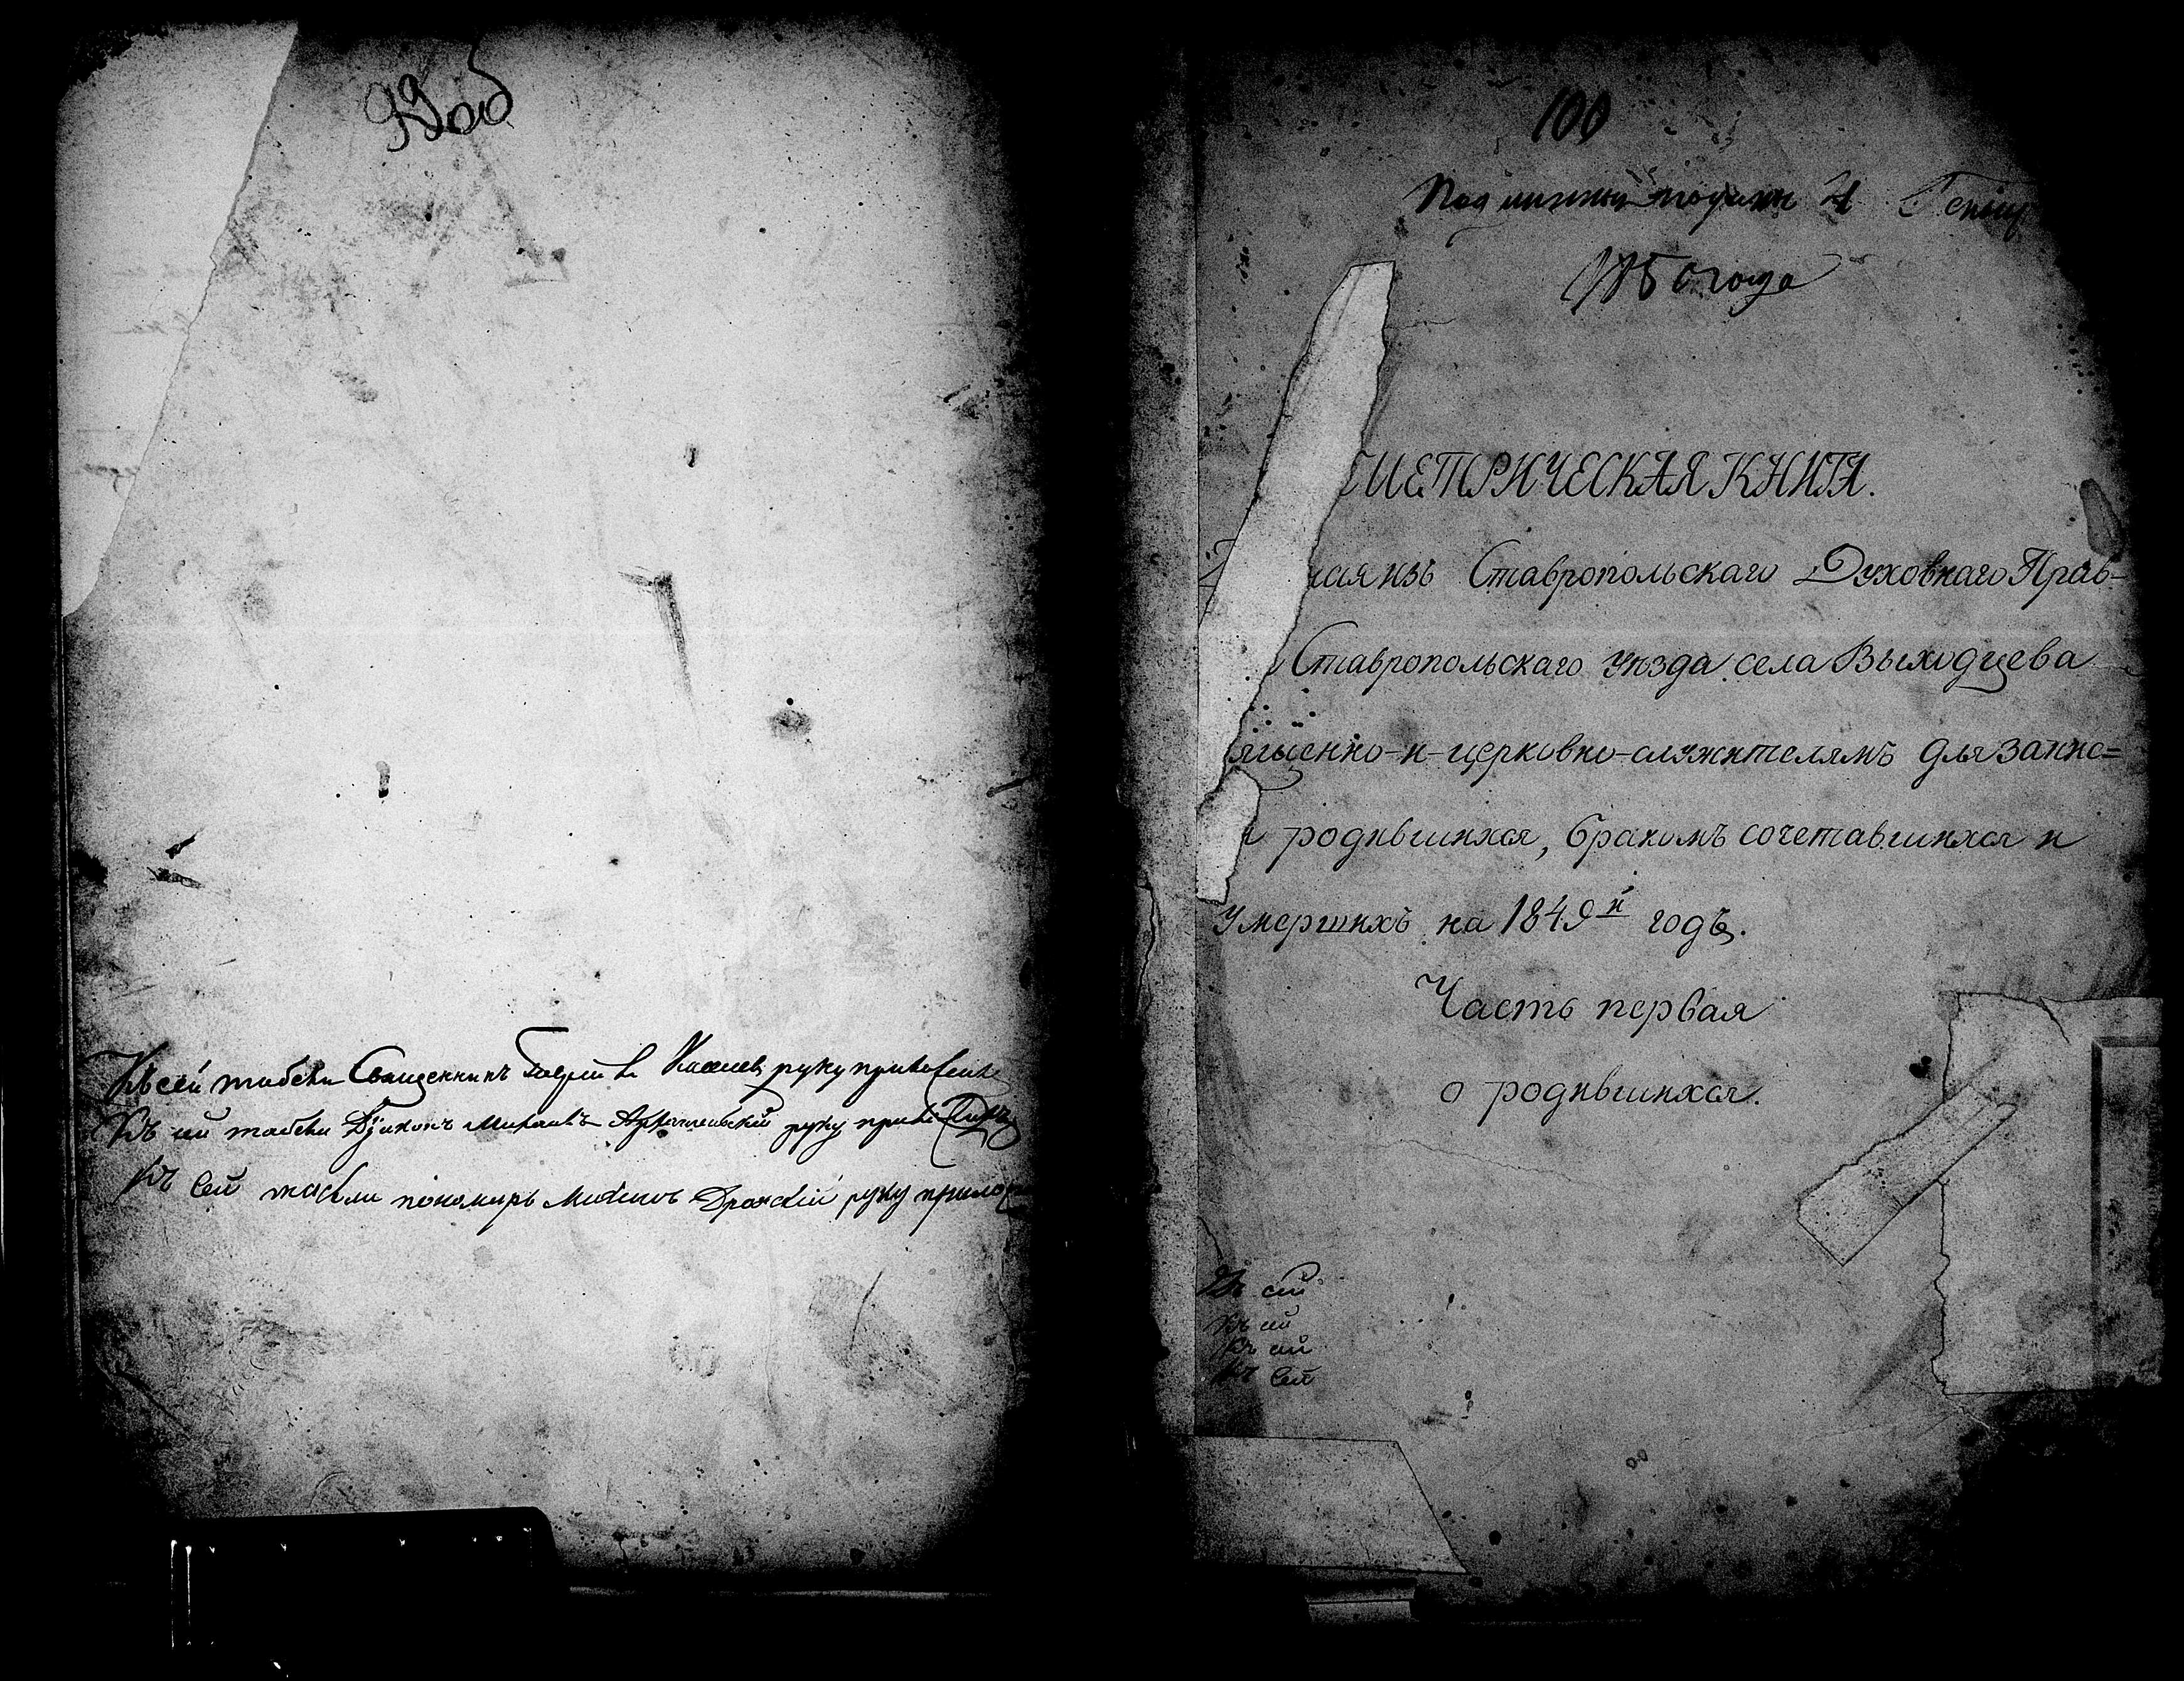 99 об
Къ сей табели Священникъ руку приложилъ
Къ сей табели Діаконъ Михаилъ Архангельскій руку приложилъ
Къ сей табели пономарь Драгскій руку прило
100
1850 года
МЕТРИЧЕСКАЯ КНИГА.
ная изъ Ставропольскаго Духовнаго Прав-
Ставропольскаго уѣзда села Выходцева
ященно-и-церковно-служителямъ для запис=
родившихся, бракомъ сочетавшихся и
умершихъ на 1849й годъ.
Часть первая
о родившихся.
Къ сей
Къ сей
Къ сей
Къ сей